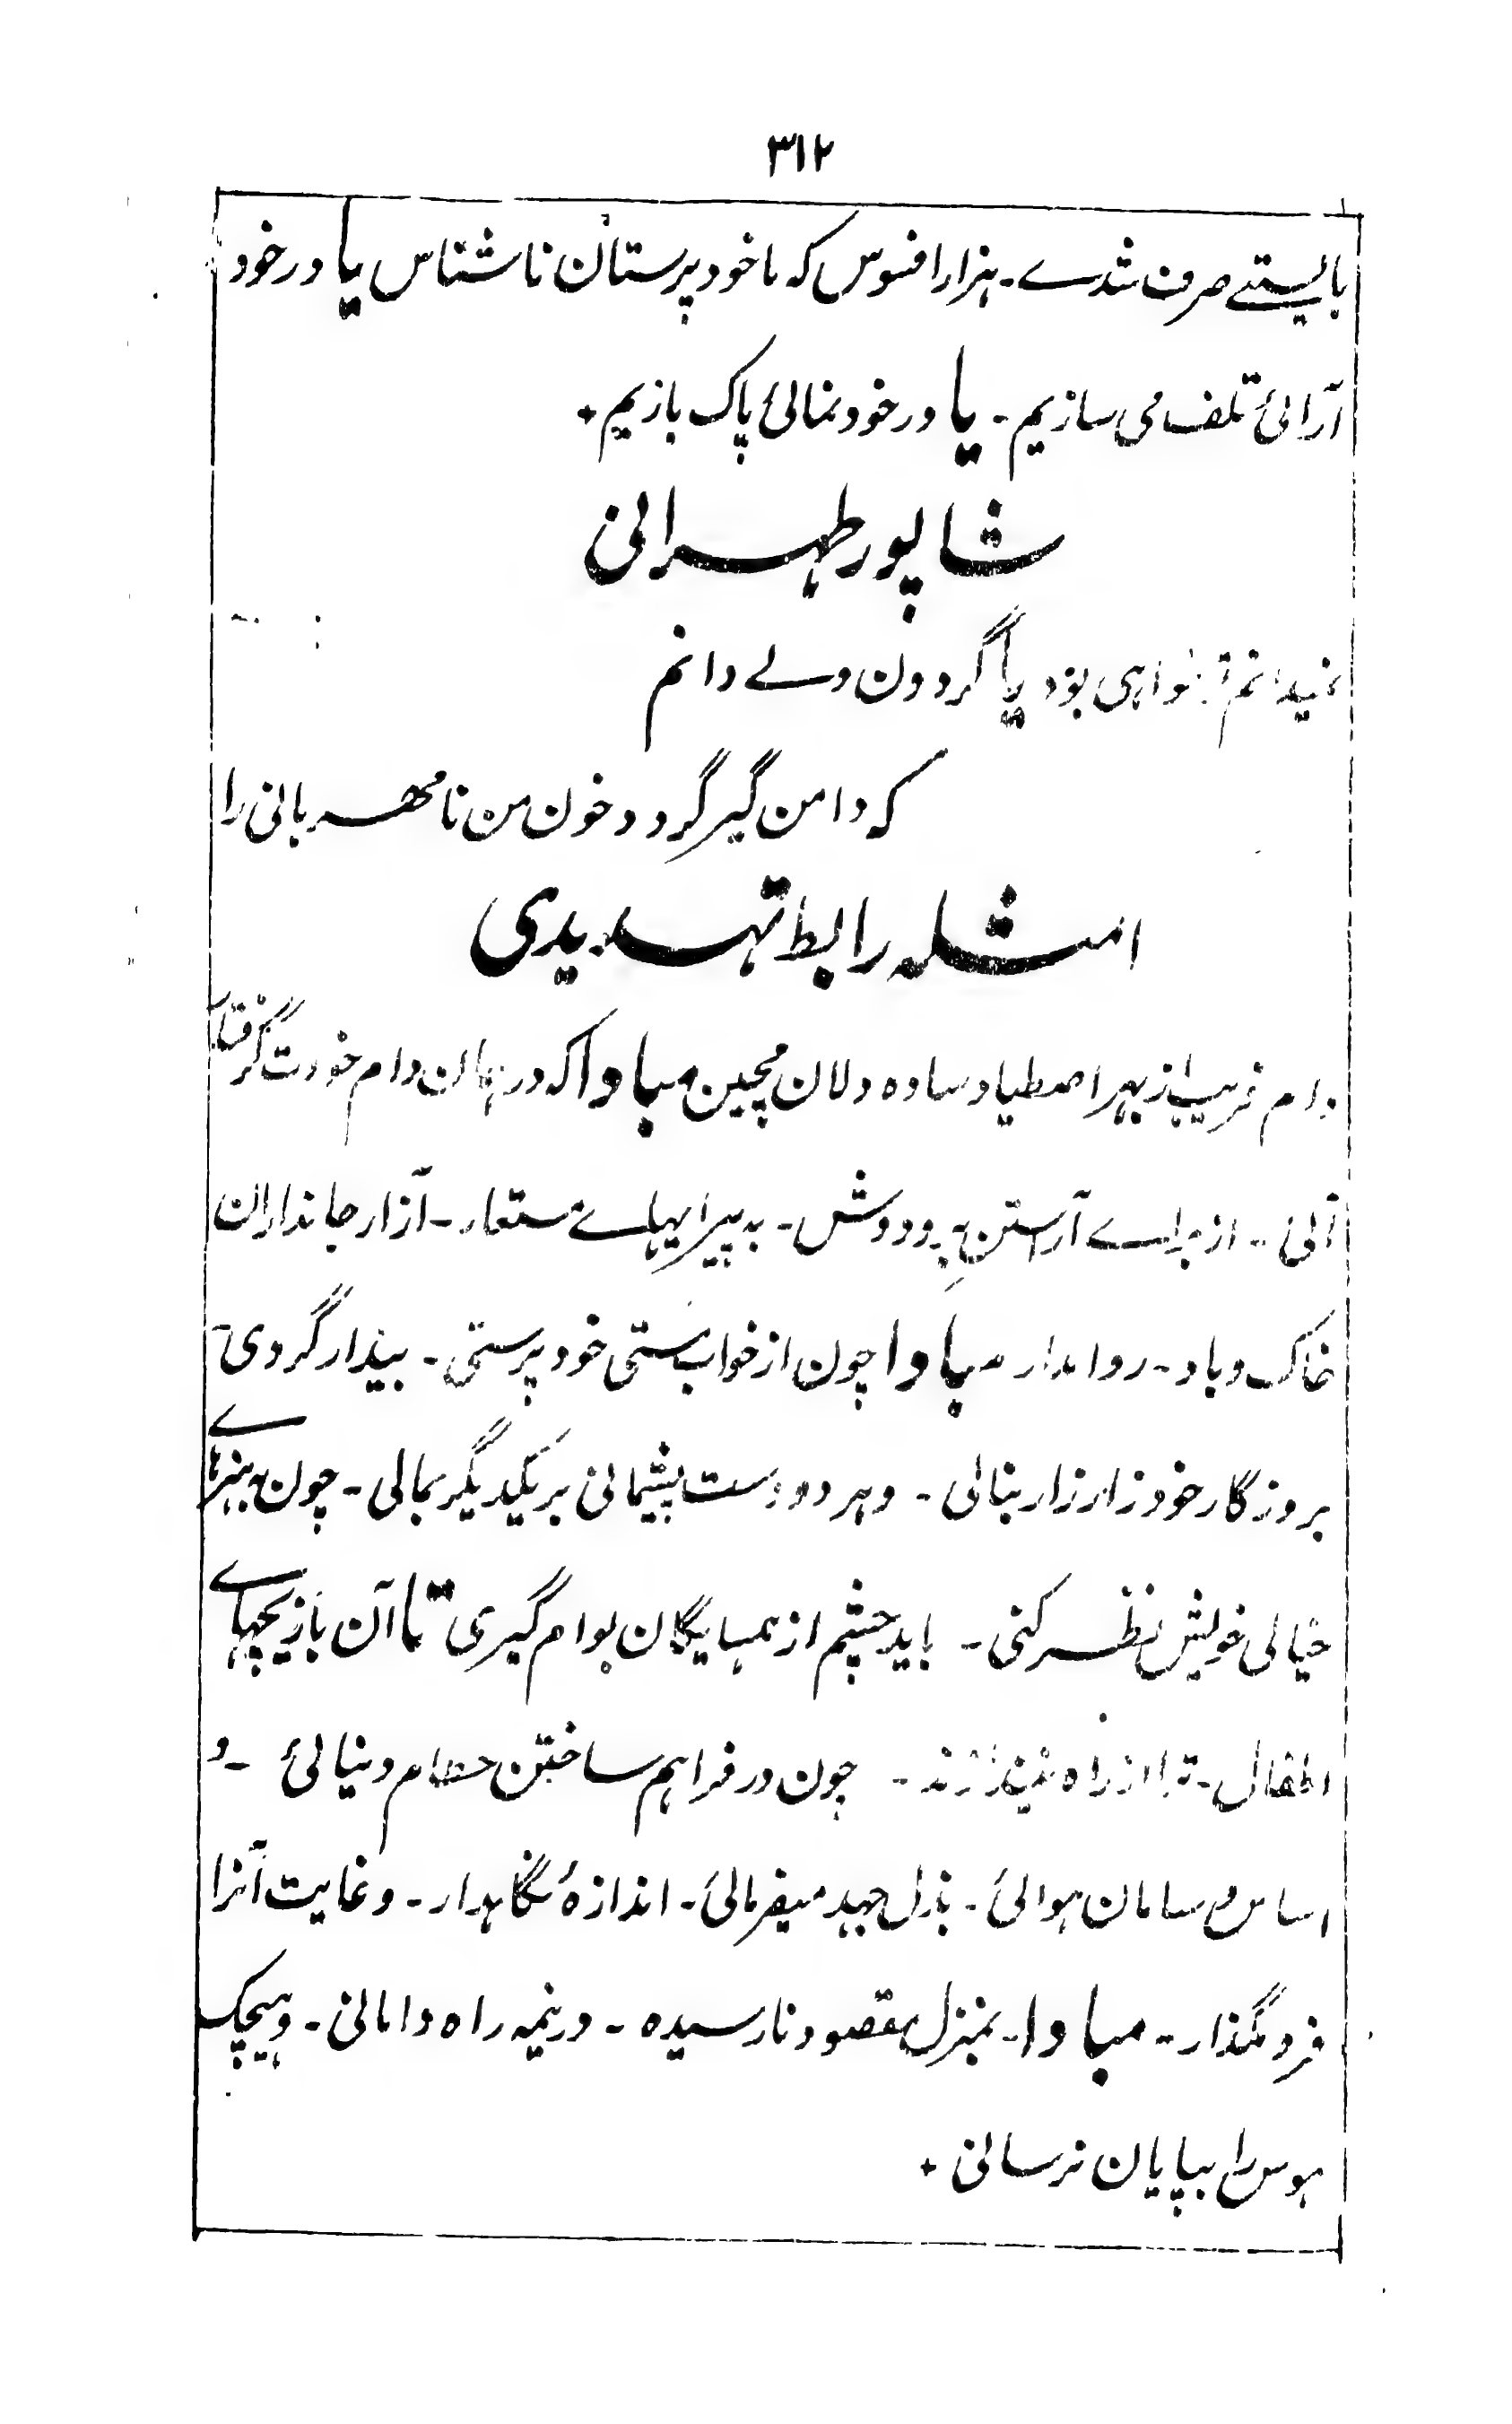 ۳۱۲
بایستے صرف شدے - ہزار افسوس کہ ما خود پرستان ناشناس یا در خود
آرائ تلف می سازیم - یا در خود نمائ پاک بازیم +
شاپور طہرانی
نمیدانم تو خواہی بود یا گردون ولے دانم
کہ دامن گیر گردد خون من نامہربانی را
امثلہ رابط تہدیدی
دام فریب از بہر اصطیاد سادہ دلان مچین مبادا کہ در ہمان دام خودت گرفتار
آئی - از براے آراستن بر و دوش - بہ پیرایہاے مستعار - آزار جانداران
خاک و باد - روا مدار مبادا چون از خواب مستی خود پرستی - بیدار گردی
بروزگار خود زار زار بنالی - و ہر دو دست پشیمانی بر یکدیگر بمالی - چون بہ ہنرہاے
خیالی خویش نظر کنی - باید چشم از ہمسایگان بوام گیری تا آن بازیچہاے
اطفال - ترا از راہ نیندازند - چون در فراہم ساختن حطام دنیائ - و
اساس و سامان ہوائ - بذل جہد میفرمائ - اندازہٴ نگاہدار - و غایت آنرا
فرو مگذار - مبادا - بمنزل مقصود نارسیدہ - در نیمہ راہ دامانی - و ہیچیک
ہوس را بپایان نرسانی +